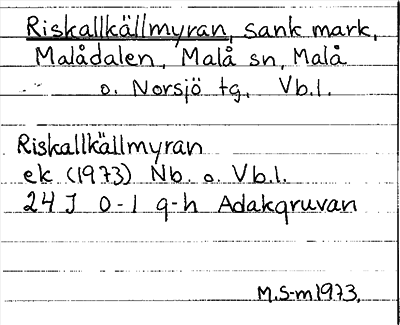 Riskallkällmyran, sank mark,
Malådalen, Malå sn, Malå
o. Norsjö tg, Vb.l.
Riskallkällmyran
ek (1973) Nb. o. Vb.l.
24 J 0-1 g-h Adakgruvan
M.S-m 1973.